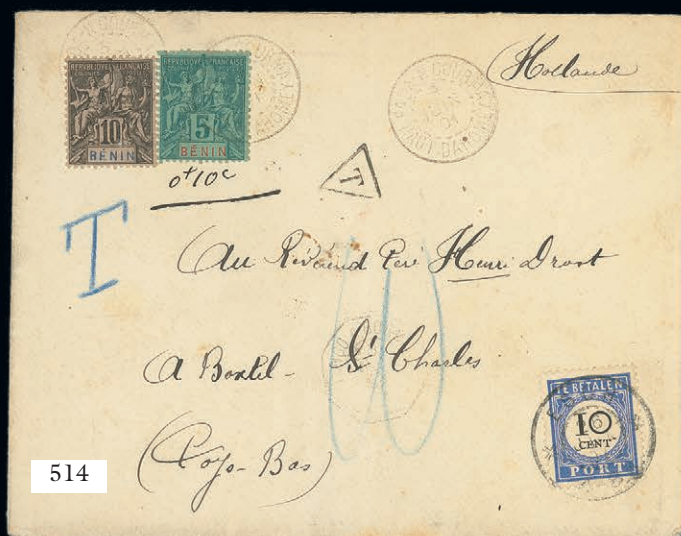 Hollande
REPUBLIQUE FRANCAISE
10
BÉNIN
REPUBLIQUE FRANCAISE
5
BÉNIN
HAUT DAHOMEY
T
T
10
Au Révérend Père Henri Drost
A Boxtel - St Charles
(Pays-Bas)
TE BETALEN
10
CENT
PORT
514